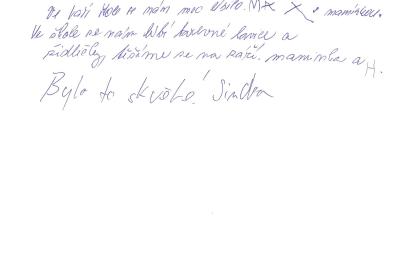 Ve vaší škole se nám moc líbilo. M X s maminkou.
Ve škole se nám líbí barevné lavice a
židličky, těšíme se na září. maminka a H.
Bylo to skvělé! Jindra